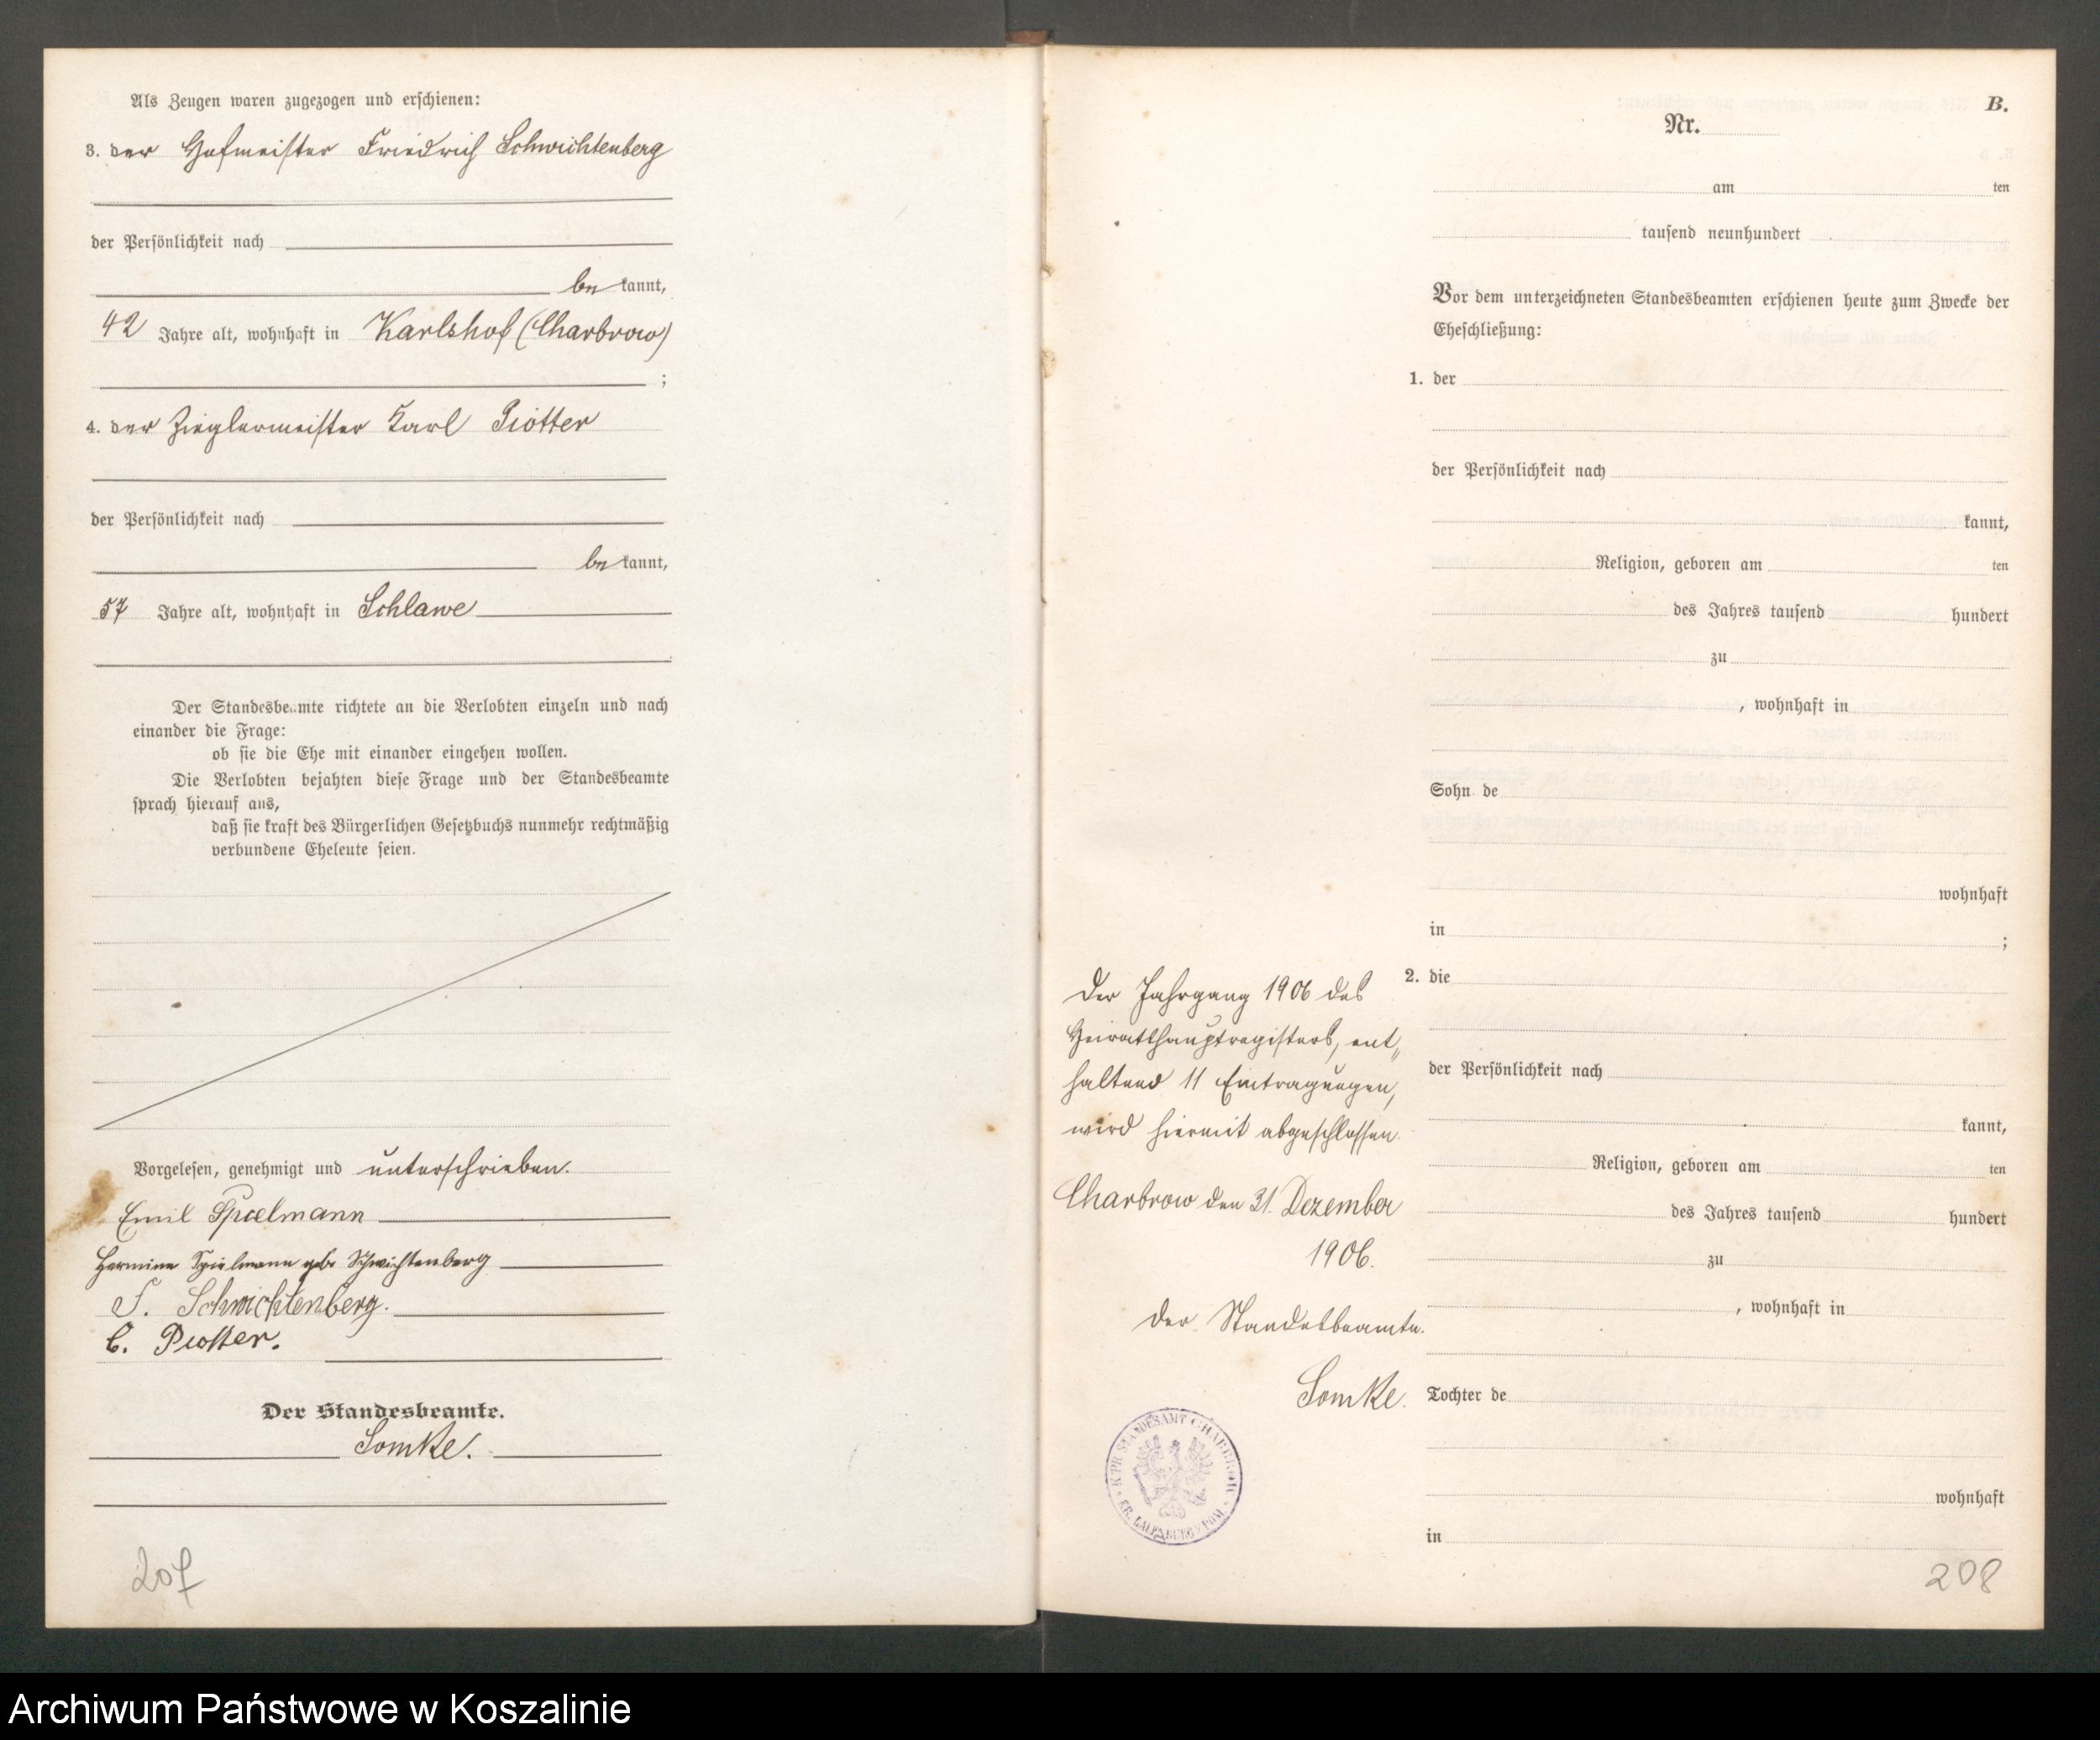 Als Zeugen waren zugezogen und erschienen:
3. der Hofmeister Friedrich Schwichtenberg
der Persönlichkeit nach
be kannt,
42 Jahre alt, wohnhaft in Karlshof (Charbrow)
;
4. der Zieglermeister Karl Piotter
der Persönlichkeit nach
be kannt,
57 Jahre alt, wohnhaft in Schlawe
Der Standesbeamte richtete an die Verlobten einzeln und nach
einander die Frage:
ob sie die Ehe mit einander eingehen wollen.
Die Verlobten bejahten diese Frage und der Standesbeamte
sprach hierauf aus,
daß sie kraft des Bürgerlichen Gesetzbuchs nunmehr rechtmäßig
verbundene Eheleute seien.
Vorgelesen, genehmigt und unterschrieben.
Emil Spielmann
Hermine Spielmann geb. Schwichtenberg
F. Schwichtenberg.
C. Piotter.
Der Standesbeamte.
Somke.
207
B.
Nr.
am ten
tausend neunhundert
Vor dem unterzeichneten Standesbeamten erschienen heute zum Zwecke der
Eheschließung:
1. der
der Persönlichkeit nach
kannt,
Religion, geboren am ten
des Jahres tausend hundert
zu
, wohnhaft in
Sohn de
wohnhaft
in ;
2. die
der Persönlichkeit nach
kannt,
Religion, geboren am ten
des Jahres tausend hundert
zu
, wohnhaft in
Tochter de
wohnhaft
in
Der Jahrgang 1906 des
Heiratshauptregisters, ent„
haltend 11 Eintragungen,
wird hiermit abgeschlossen.
Charbrow den 31. Dezember
1906.
Der Standesbeamte.
Somke.
K. PR. STANDESAMT CHARBROW
KR. LAUENBURG I. POM.
208
Archiwum Państwowe w Koszalinie